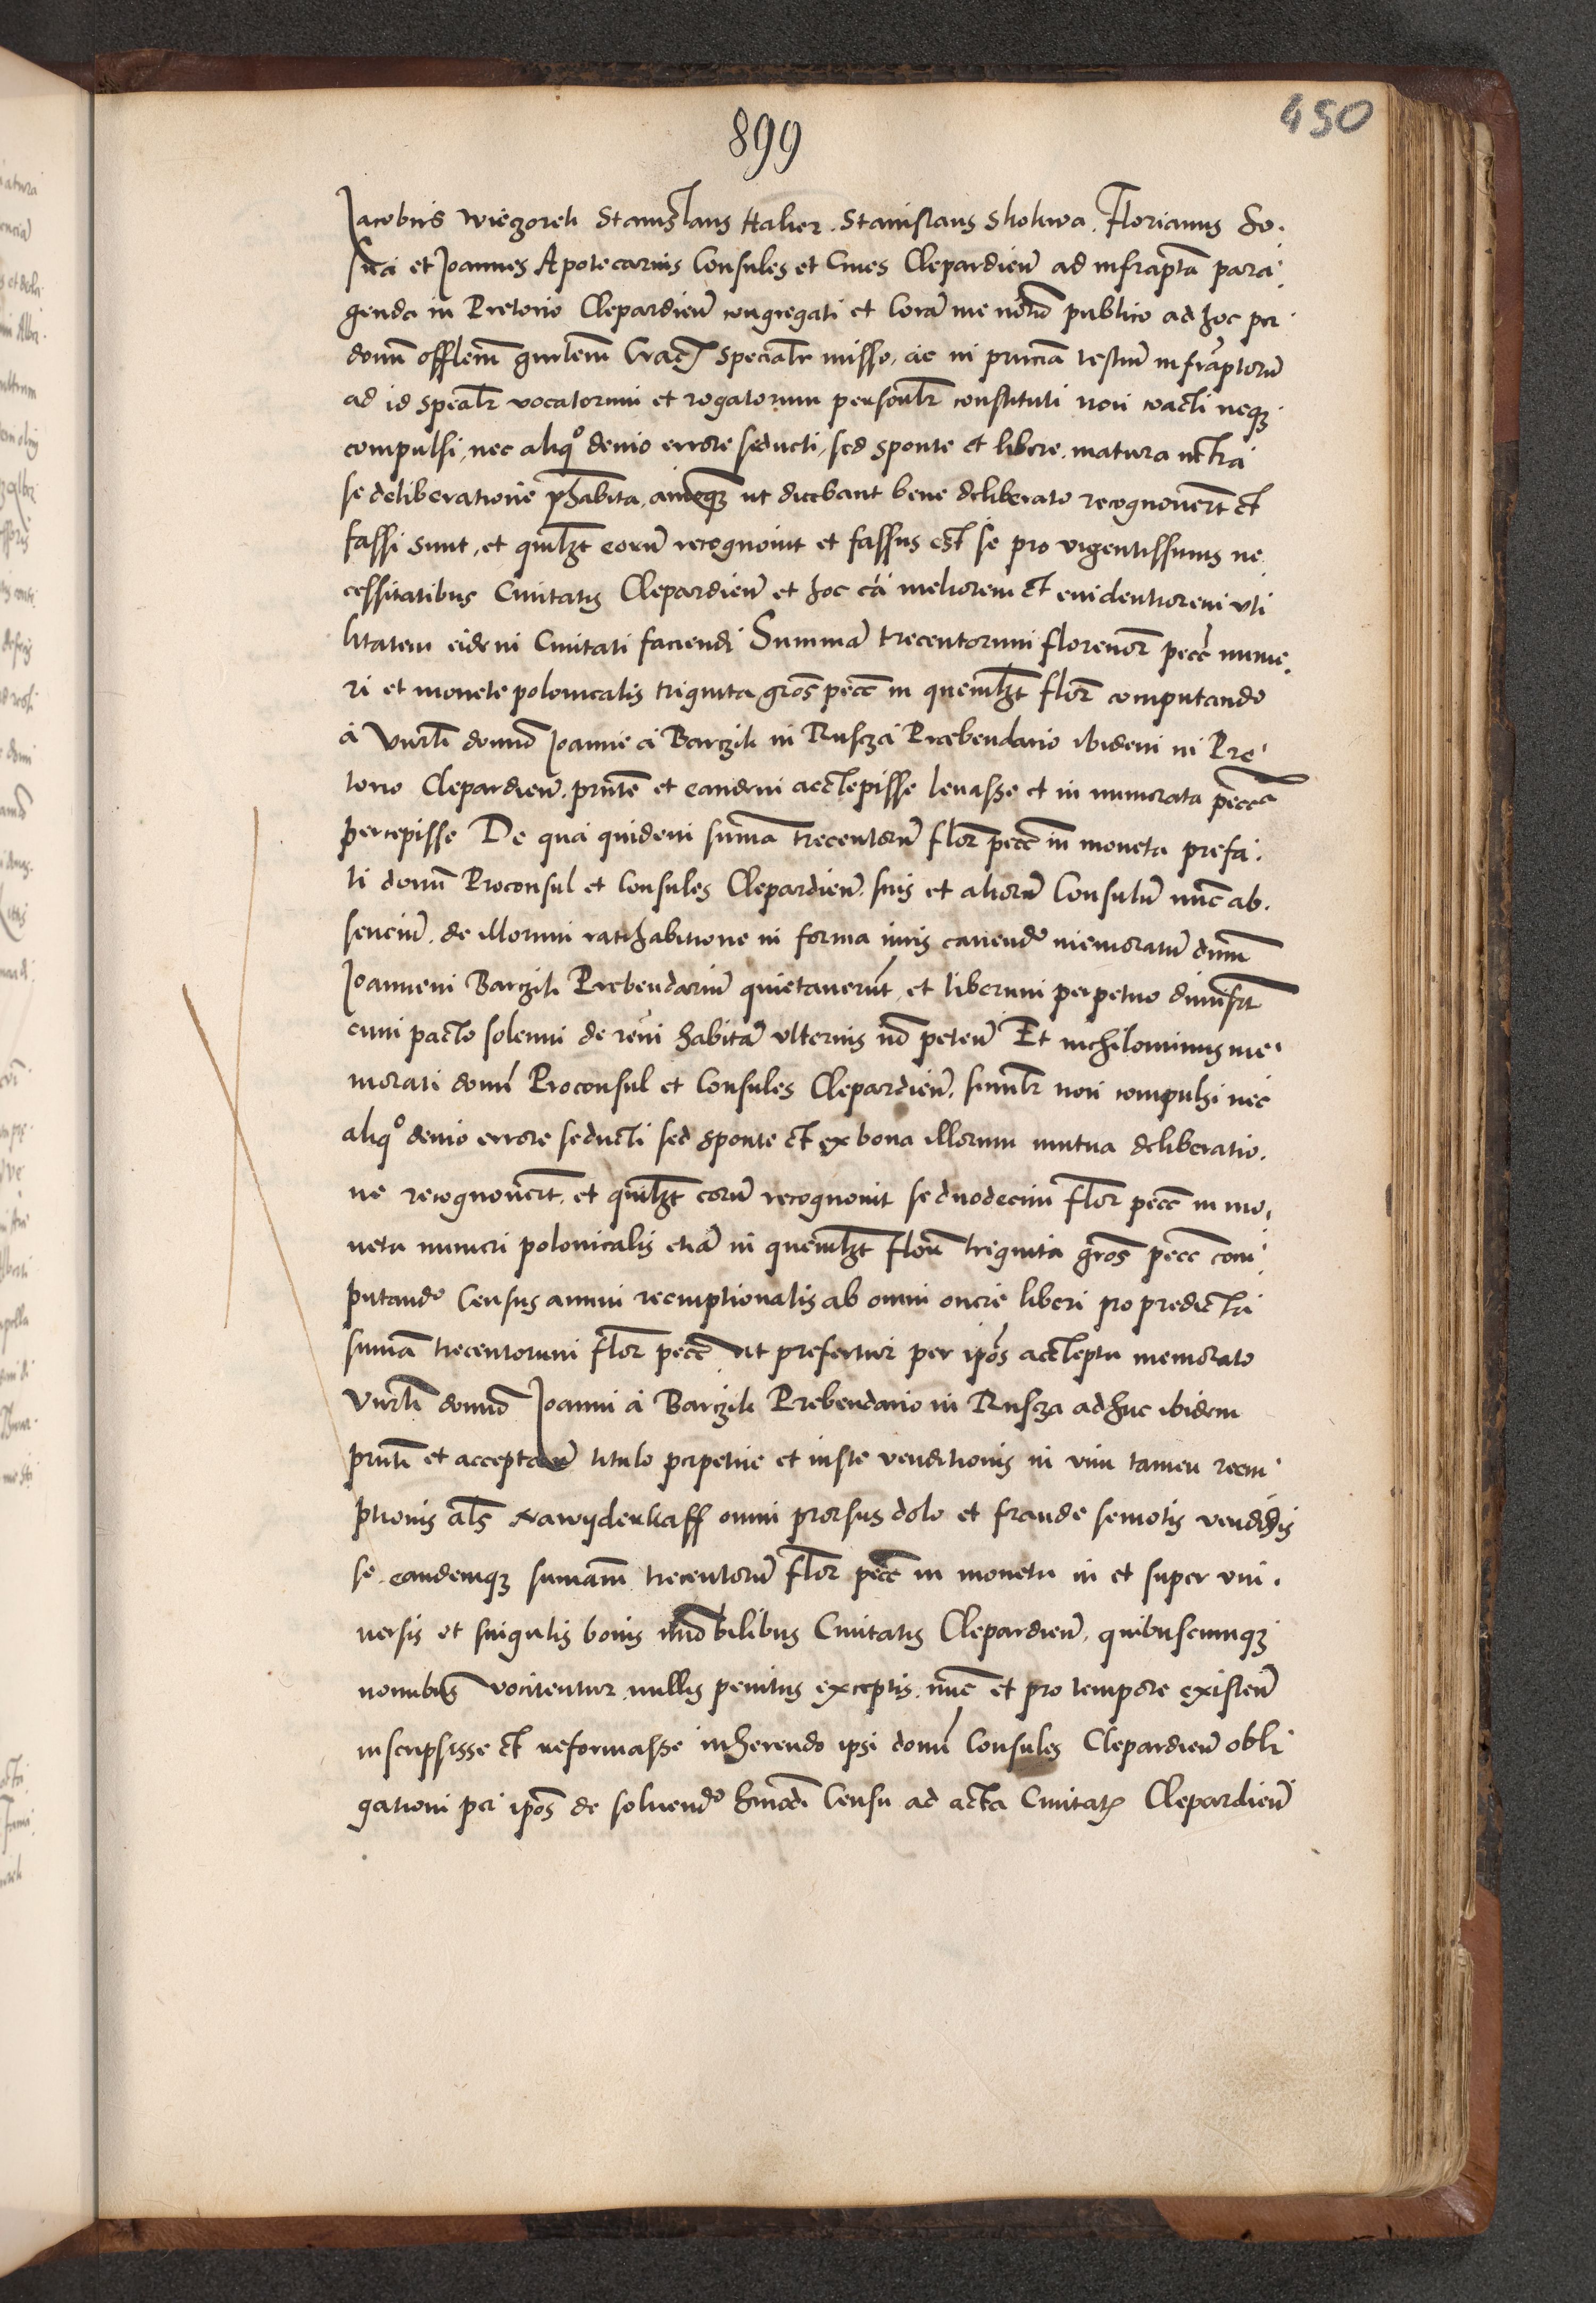 450
899
Jacobus Wieczorek Stanislaus Halier. Stanislaus Skokwa. Florianus
et Joannes Apotecarius Consules et Ciues Clepardien̄ ad infrap̄ta para
genda in Pretorio Clepardien̄ congregati et Corā me noīo publico ad hoc per
domn̄ offlem̄ gn̄lem̄ Crac̄ specialr̄ misso, ac in pn̄ciā testiū infrap̄torū
ad id spealr̄ vocatorum et rogatorum personlr̄ constituti non coacti neqꝫ
compulsi, nec aliq° deuio errore seducti, sed sponte et libere. matura intra
se deliberatione p̄habita, animoqꝫ ut dicebant bene deliberato recognouert̄ et
fassi sunt, et quilꝫt eorū recognouit et fassus est se pro vrgentissimis ne
cessitatibus Ciuitatis Clepardien̄ et hoc cā meliorem et euidentiorem vti
litatem eidem Ciuitati faciendi Summā trecentorum florenor̄ pecc̄ nume
ri et monete polonicalis triginta gros̄ pecc̄ in quemlꝫt flor̄ computando
à Vn̄rli domno Joanne à Barczik in Rusczà Præbendario ibidem in Pre
torio Clepardien̄. pn̄te et eandem acctepisse leuasse et in numerata pecc̄
percepisse De qua quidem sum̄a trecentorū flor̄ pecc̄ in moneta prefa
ti domn̄ Proconsul et Consules Clepardien̄. suis et aliorū Consulū nūc ab.
senciū. de illorum ratihabitione in forma iuris cauendo memoratū dnm̄
Joannem Barczik Prebendariū quietauerūt, et liberum perpetuo dimisert̄
cum pacto solenni de rem habitā vlterius nō peten̄ Et nichilominus me
morati domī Proconsul et Consules Clepardien̄. similr̄ non compulsi nec
aliq° deuio errore seducti sed sponte et ex bona illorum mutua deliberatio.
ne recognouert̄. et quilꝫt eorū recognouit se duodecim flor̄ pecc̄ in mo
neta numeri polonicalis etiā in quemlꝫt flor̄ triginta gros̄ pecc̄ com
putando Census annui reemptionalis ab omni onere liberi pro predicta
sum̄a trecentorum flor̄ pecc̄ vt prefertur per ip̄os acctepta memorato
Vn̄rli domno Joanni à Barczik Prebendario in Ruscza adhuc ibidem
pn̄ti et acceptan̄ titulo perpetue et iuste venditionis in vim tamen reem
ptionis als̄ nawyderkaff omni prorsus dolo et fraude semotis vendidis
se. eandemqꝫ sum̄am trecentorū flor̄ pecc̄ in moneta in et super vni
uersis et singulis bonis īmobilibus Ciuitatis Clepardien̄, quibuscumqꝫ
nomībus vocitentur nullis penitus exceptis. nūc et pro tempore existen̄
inscripsisse et reformasse inherendo ipsi domī Consules Clepardien̄ obli
gationi per ip̄os de soluendo hmōdi Censu ad acta Ciuitatꝭ Clepardien̄